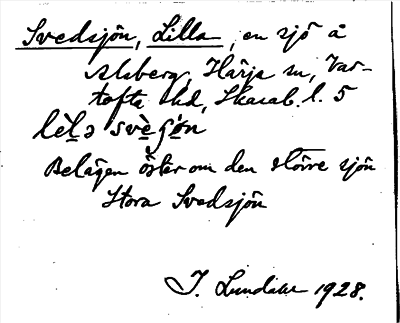 Svedsjön, Lilla, en sjö å
Alsberg, Härja sn, Var-
tofta hd, Skarab. l. 5
lèḷə svèg̣ọ̈n
Belägen öster om den större sjön
Stora Svedsjön
J. Lundahl 1928.